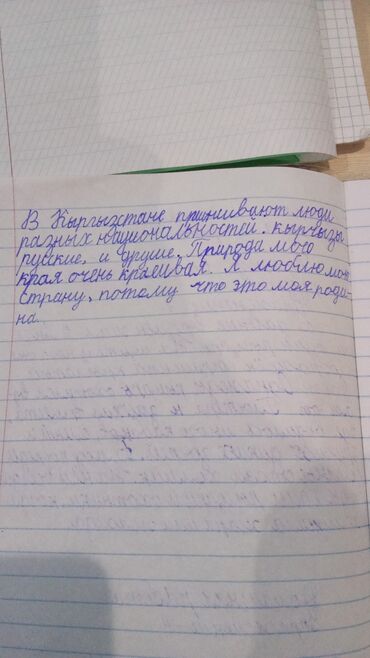 В Кыргызстане приживают люди
разных национальностей. кыргызы
руские, и другие. Природа моего
края очень красивая. Я люблю мою
страну, потому что это моя роди-
на.